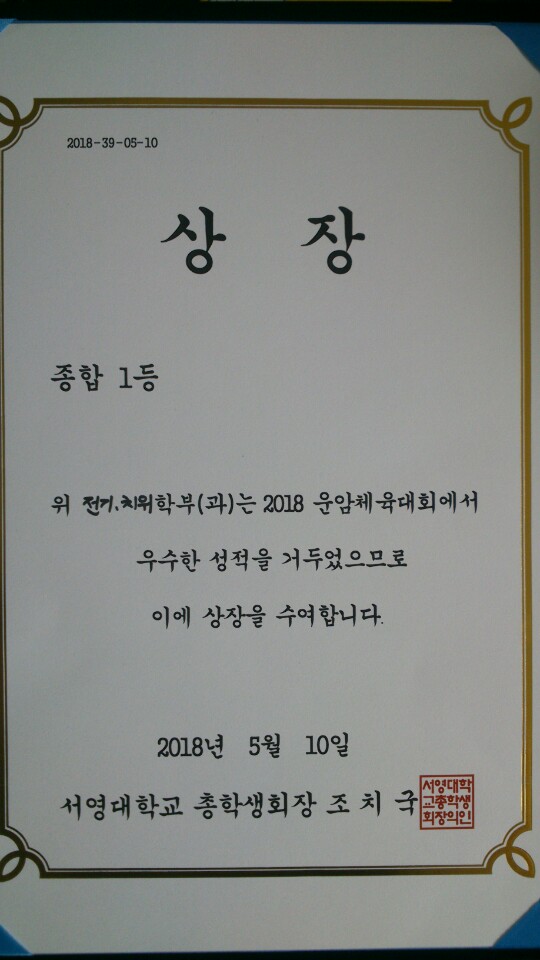 2018-39-05-10
상 장
종합 1등
위 전기.치위학부(과)는 2018 운암체육대회에서
우수한 성적을 거두었으므로
이에 상장을 수여합니다.
2018년 5월 10일
서영대학교 총학생회장 조 치 국
서영대학
교총학생
회장의인